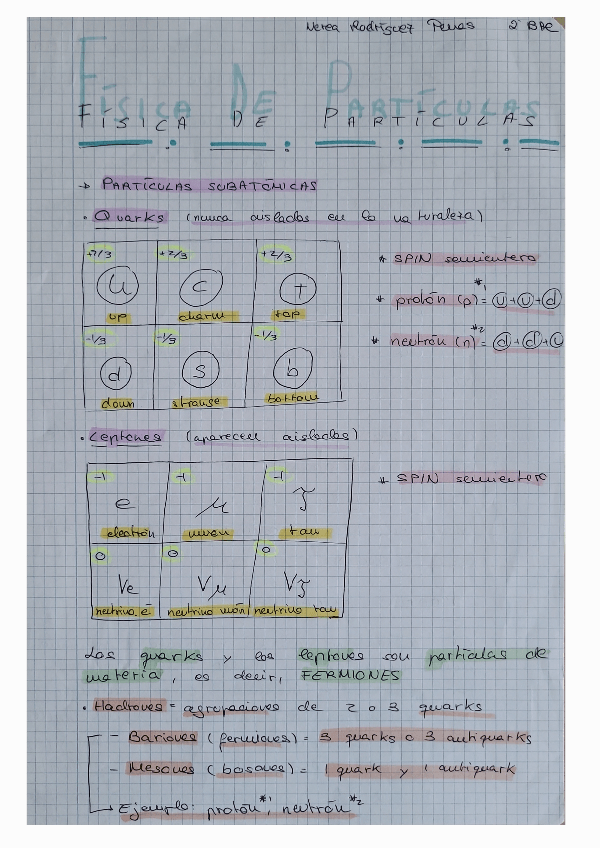 Nerea Rodríguez Penas 2º BBC
FÍSICA DE PARTÍCULAS
→ PARTÍCULAS SUBATÓMICAS
• Quarks (nunca aislados en la naturaleza)
+2/3 +2/3 +2/3
u c t
up charm top
-1/3 -1/3 -1/3
d s b
down strange bottom
* SPIN semientero
* protón (p)*1 = u+u+d
* neutrón (n)*2 = d+d+u
• Leptones (aparecen aislados)
-1 -1 -1
e μ τ
electrón muon tau
0 0 0
Ve Vμ Vτ
neutrino e neutrino muón neutrino tau
* SPIN semientero
Los quarks y los leptones son partículas de
materia, es decir, FERMIONES
• Hadrones = agrupaciones de 2 o 3 quarks
- Bariones (fermiones) = 3 quarks o 3 antiquarks
- Mesones (bosones) = 1 quark y 1 antiquark
→ Ejemplo: protón*1, neutrón*2